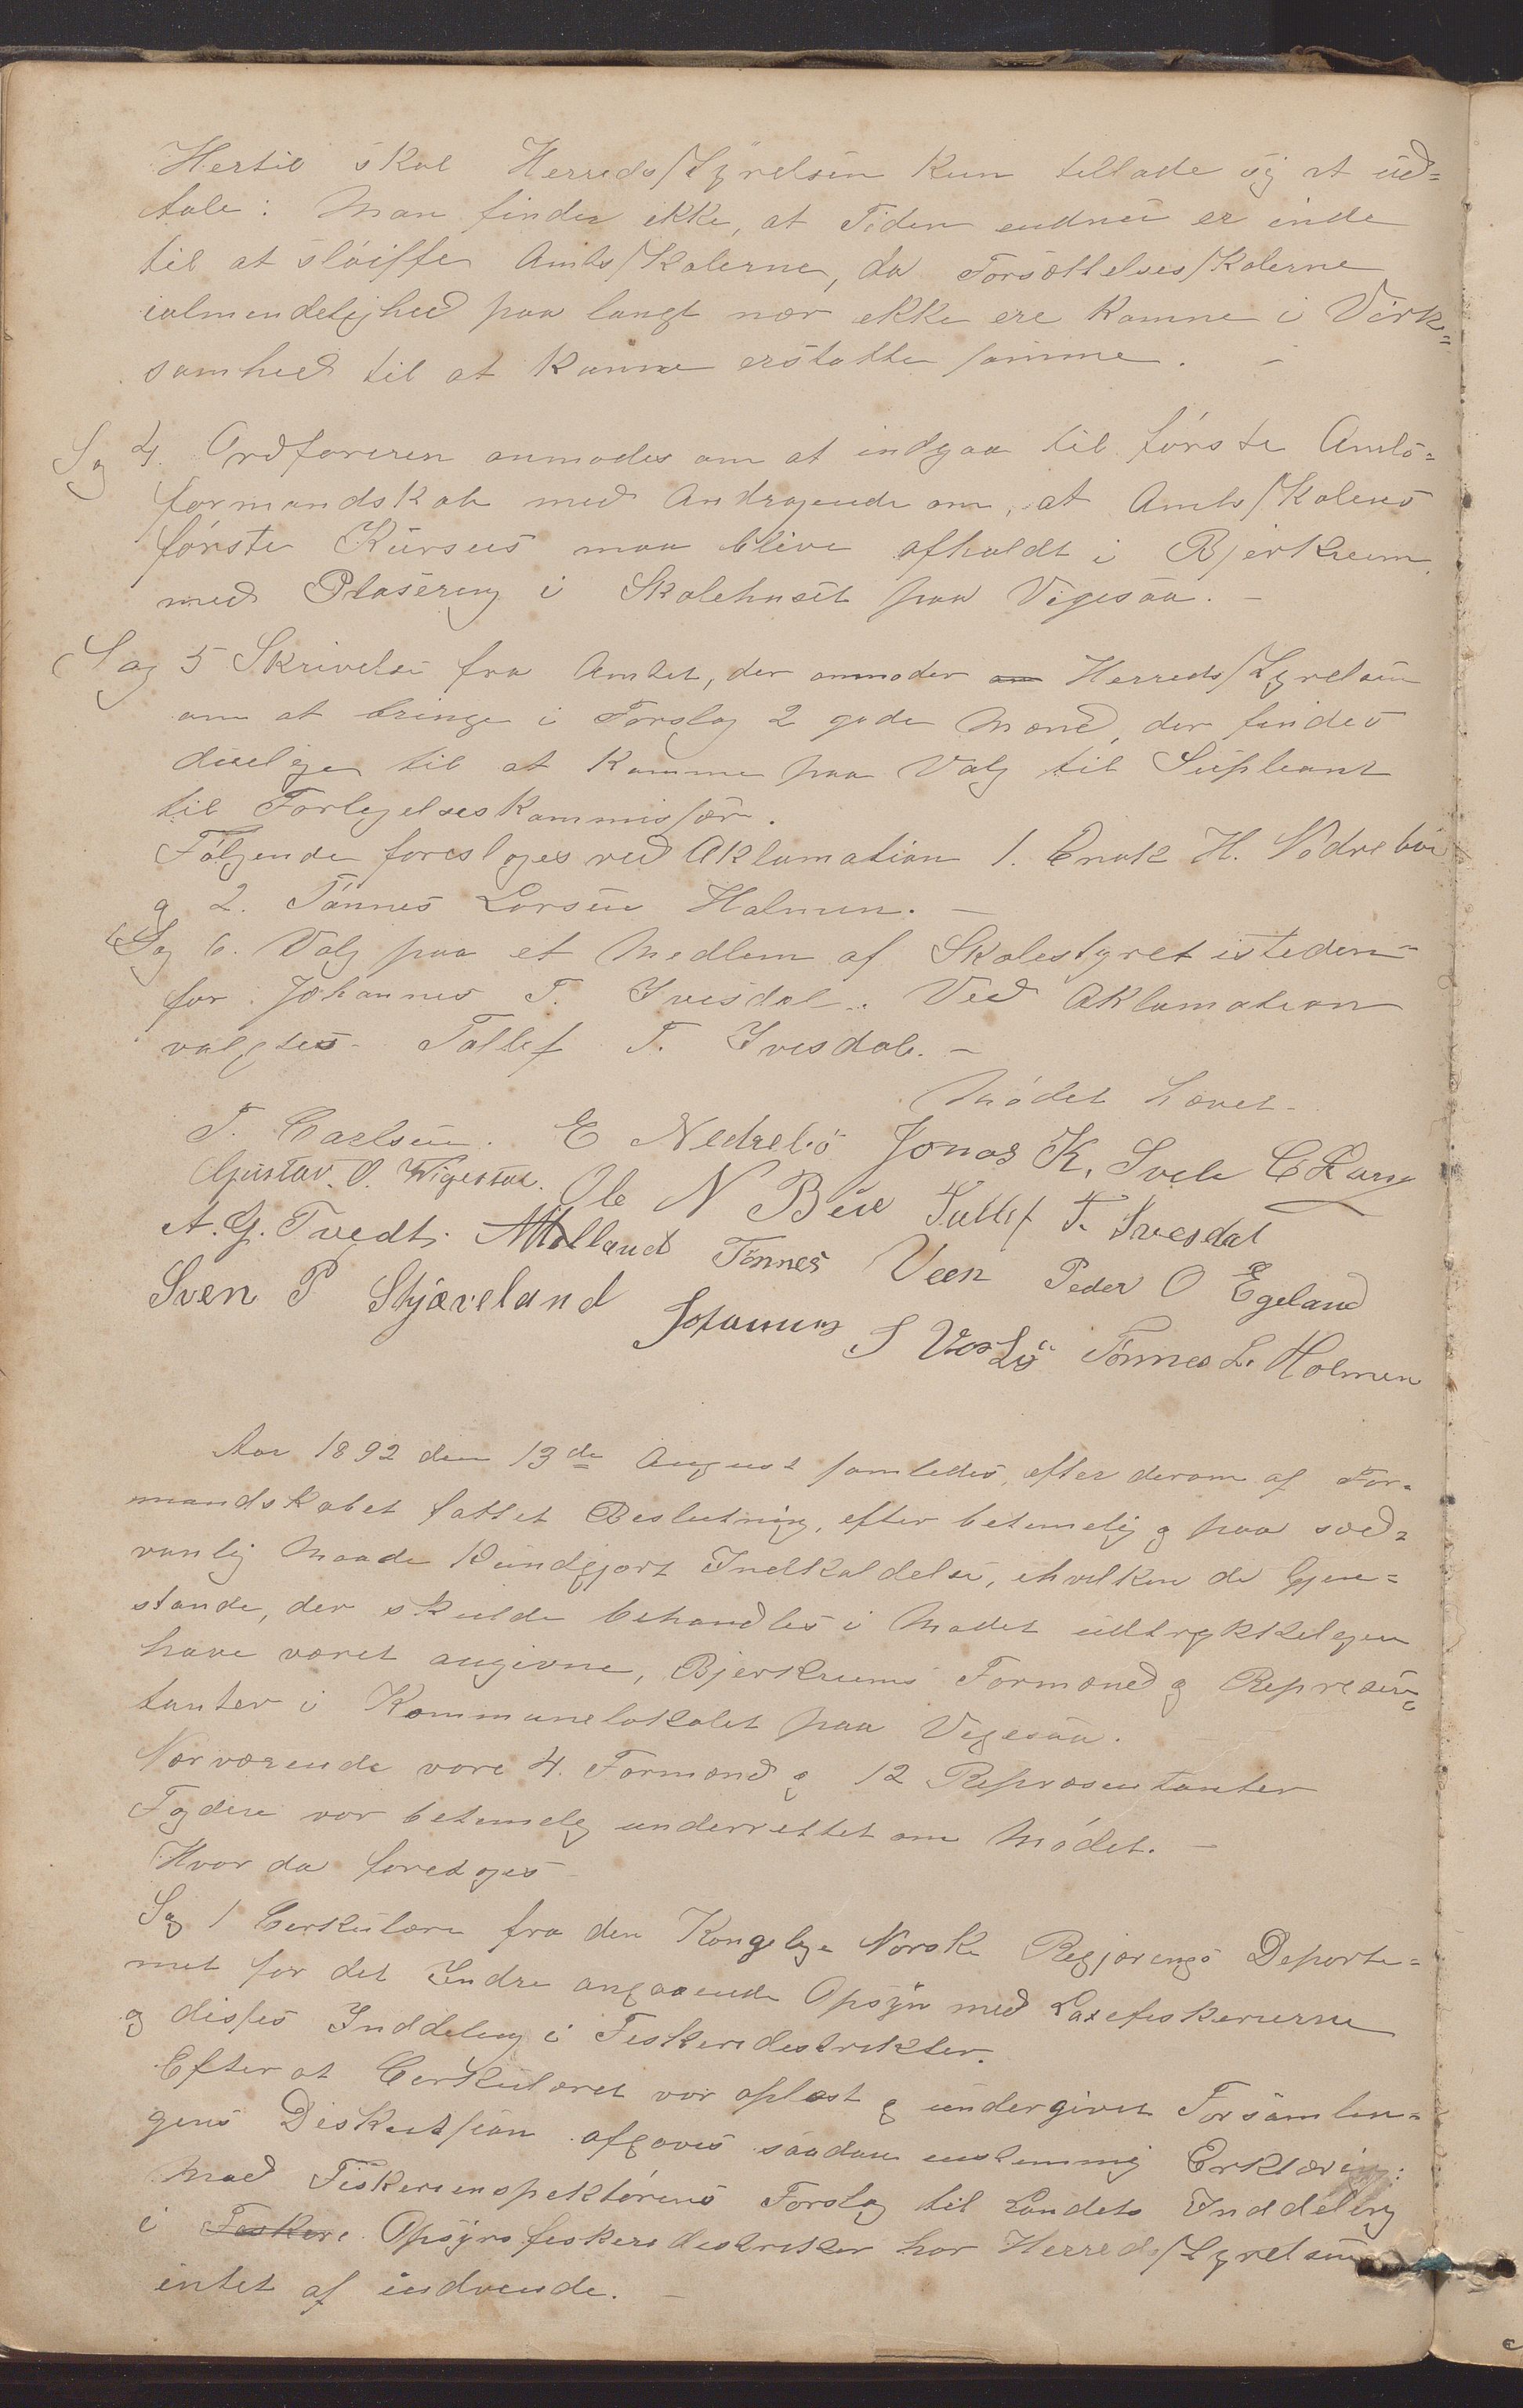 Hertil skal Herredsstyrelsen kun tillade sig at ud=
tale: Man finder ikke, at Tiden endnu er inde
til at sløiffe Amtsskolerne, da Forsættelsesskolerne
ialmindelighed paa langt nær ikke ere komne i Virk=
somhed til at kunne erstatte samme. -
Sag 4. Ordføreren anmodes om at indgaa til første Amts=
formandskab med Andragende om, at Amtsskolens
første Kursus maa blive afholdt i Bjerkreim
med Plasering i Skolehuset paa Vigesaa. -
Sag 5 Skrivelse fra Amtet, der anmoder om Herredsstyrelsen
om at bringe i Forslag 2 gode Mænd, der findes
duelige til at komme paa Valg til Supleant
til Forligelseskommissær.
Følgende foresloges ved Aklamation 1. Enok H. Nedrebø
og 2. Tønnes Larsen Holmen. -
Sag 6. Valg paa et Medlem af Skolestyret isteden-
for Johannes T. Ivesdal. Ved Aklamation
valgtes Tollef T. Ivesdal. -
Mødet hævet -
T. Carlsen. E Nedrebø Jonas K. Svele
Gustav. O. Wigessaa. Ole N Bue Tollef T. Ivesdal
A. G. Tvedt. Tønnes Veen Peder O Egeland
Sven P Skjæveland Johannes S Vaslø Tønnes L. Holmen
Aar 1892 den 13de August samledes, efter derom af For=
mandskabet fattet Beslutning, efter betimelig og paa sæd=
vanlig Maade kundgjort Indkaldelse, ihvilken de Gjen=
stande, der skulde behandles i Mødet udtrykkeligen
have været angivne, Bjerkreims Formænd og Repræsen=
tanter i Kommunelokalet paa Vigesaa.
Nærværende vare 4. Formænd og 12 Repræsentanter
Fogden var betimelig underrettet om Mødet. -
Hvor da foretoges
Sag 1 Cerkulære fra den Kongelige Norske Regjerings Departe=
met for det Indre angaaende Opsyn med Laxefiskerierne
og disses Inddeling i Fiskeridestrikter.
Efter at Cerkulæret var oplæst og undergivet Forsamlin=
gens Diskussion afgaves saadan enstemmig Erklæring:
Mod Fiskeriinspektørens Forslag til Landets Inddeling
i Fiskeri Opsynsfiskeridestrikter har Herredsstyrelsen
intet af indvende. -